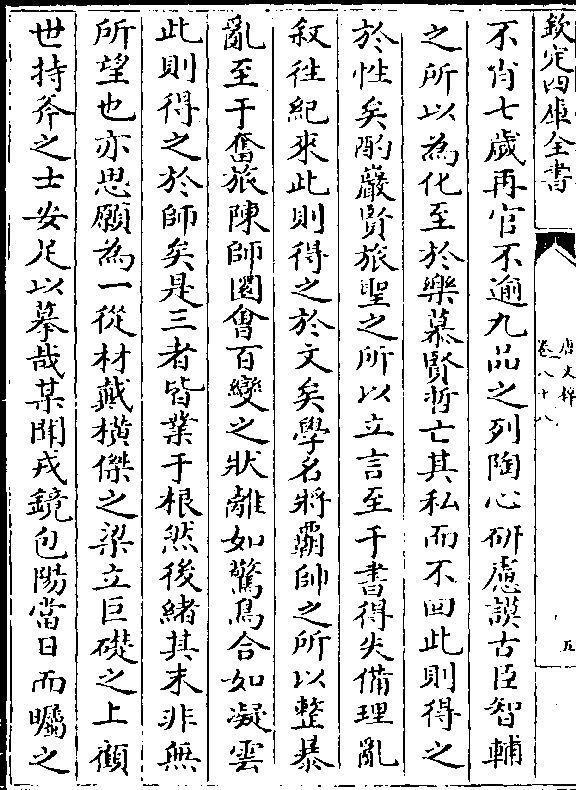 欽定四庫全書
唐文粹
卷八十八
五
不肖七歲再官不逾九品之列陶心研慮謨古臣智輔
之所以為化至於樂慕賢哲亡其私而不回此則得之
於性矣酌嚴賢旅聖之所以立言至于書得失備理亂
叙往紀來此則得之於文矣學名將覇帥之所以整暴
亂至于奮旅陳師圜㑹百變之狀離如驚鳥合如凝雲
此則得之於師矣是三者皆業于根然後緒其末非無
所望也亦思願為一從材戴横傑之梁立巨礎之上顧
世持斧之士安足以摹哉某聞戎鏡包陽當日而曯之